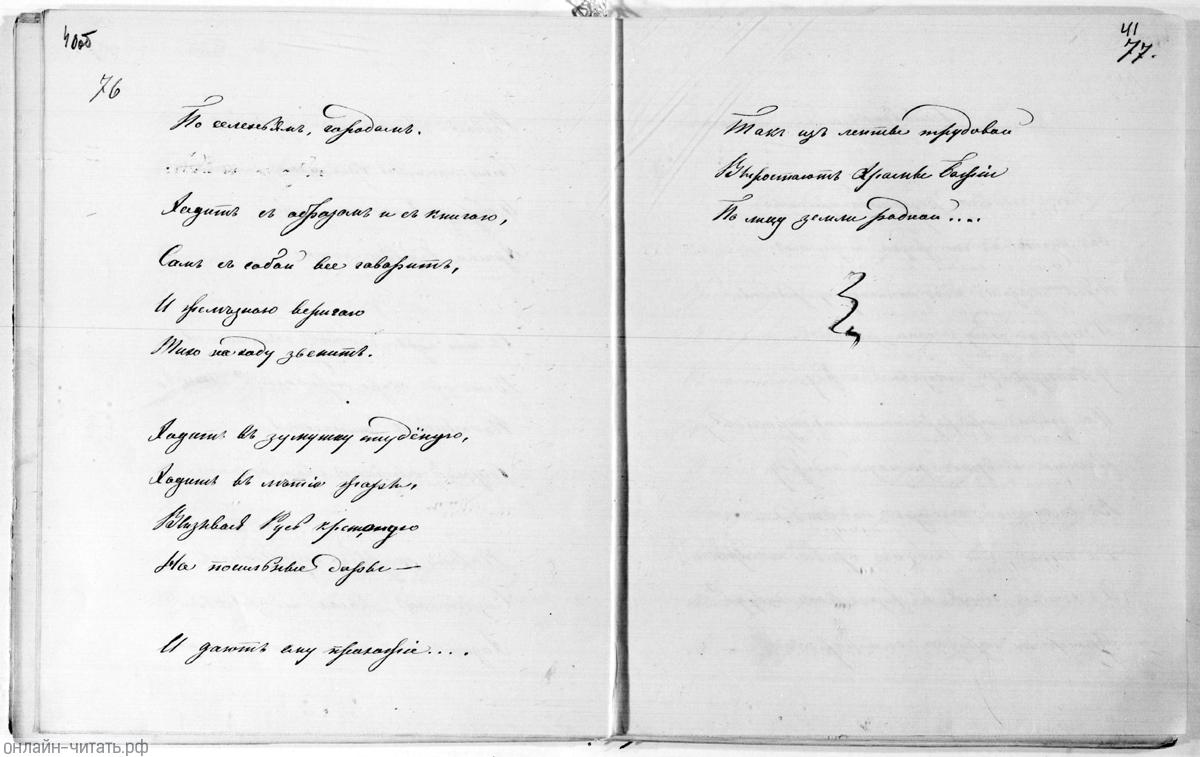 40об
76
По селеньямъ, городамъ.
Ходитъ съ образомъ и съ книгою,
Самъ съ собой все говоритъ,
И желѣзною веригою
Тихо на ходу звенитъ.
Ходитъ въ зимушку студёную,
Ходитъ въ лѣтніе жары,
Вызывая Русь крещоную
На посильные дары —
И даютъ ему прохожіе....
41
77.
Такъ изъ лепты трудовой
Выростаютъ Храмы Божіи
По лицу земли родной....
онлайн-читать.рф